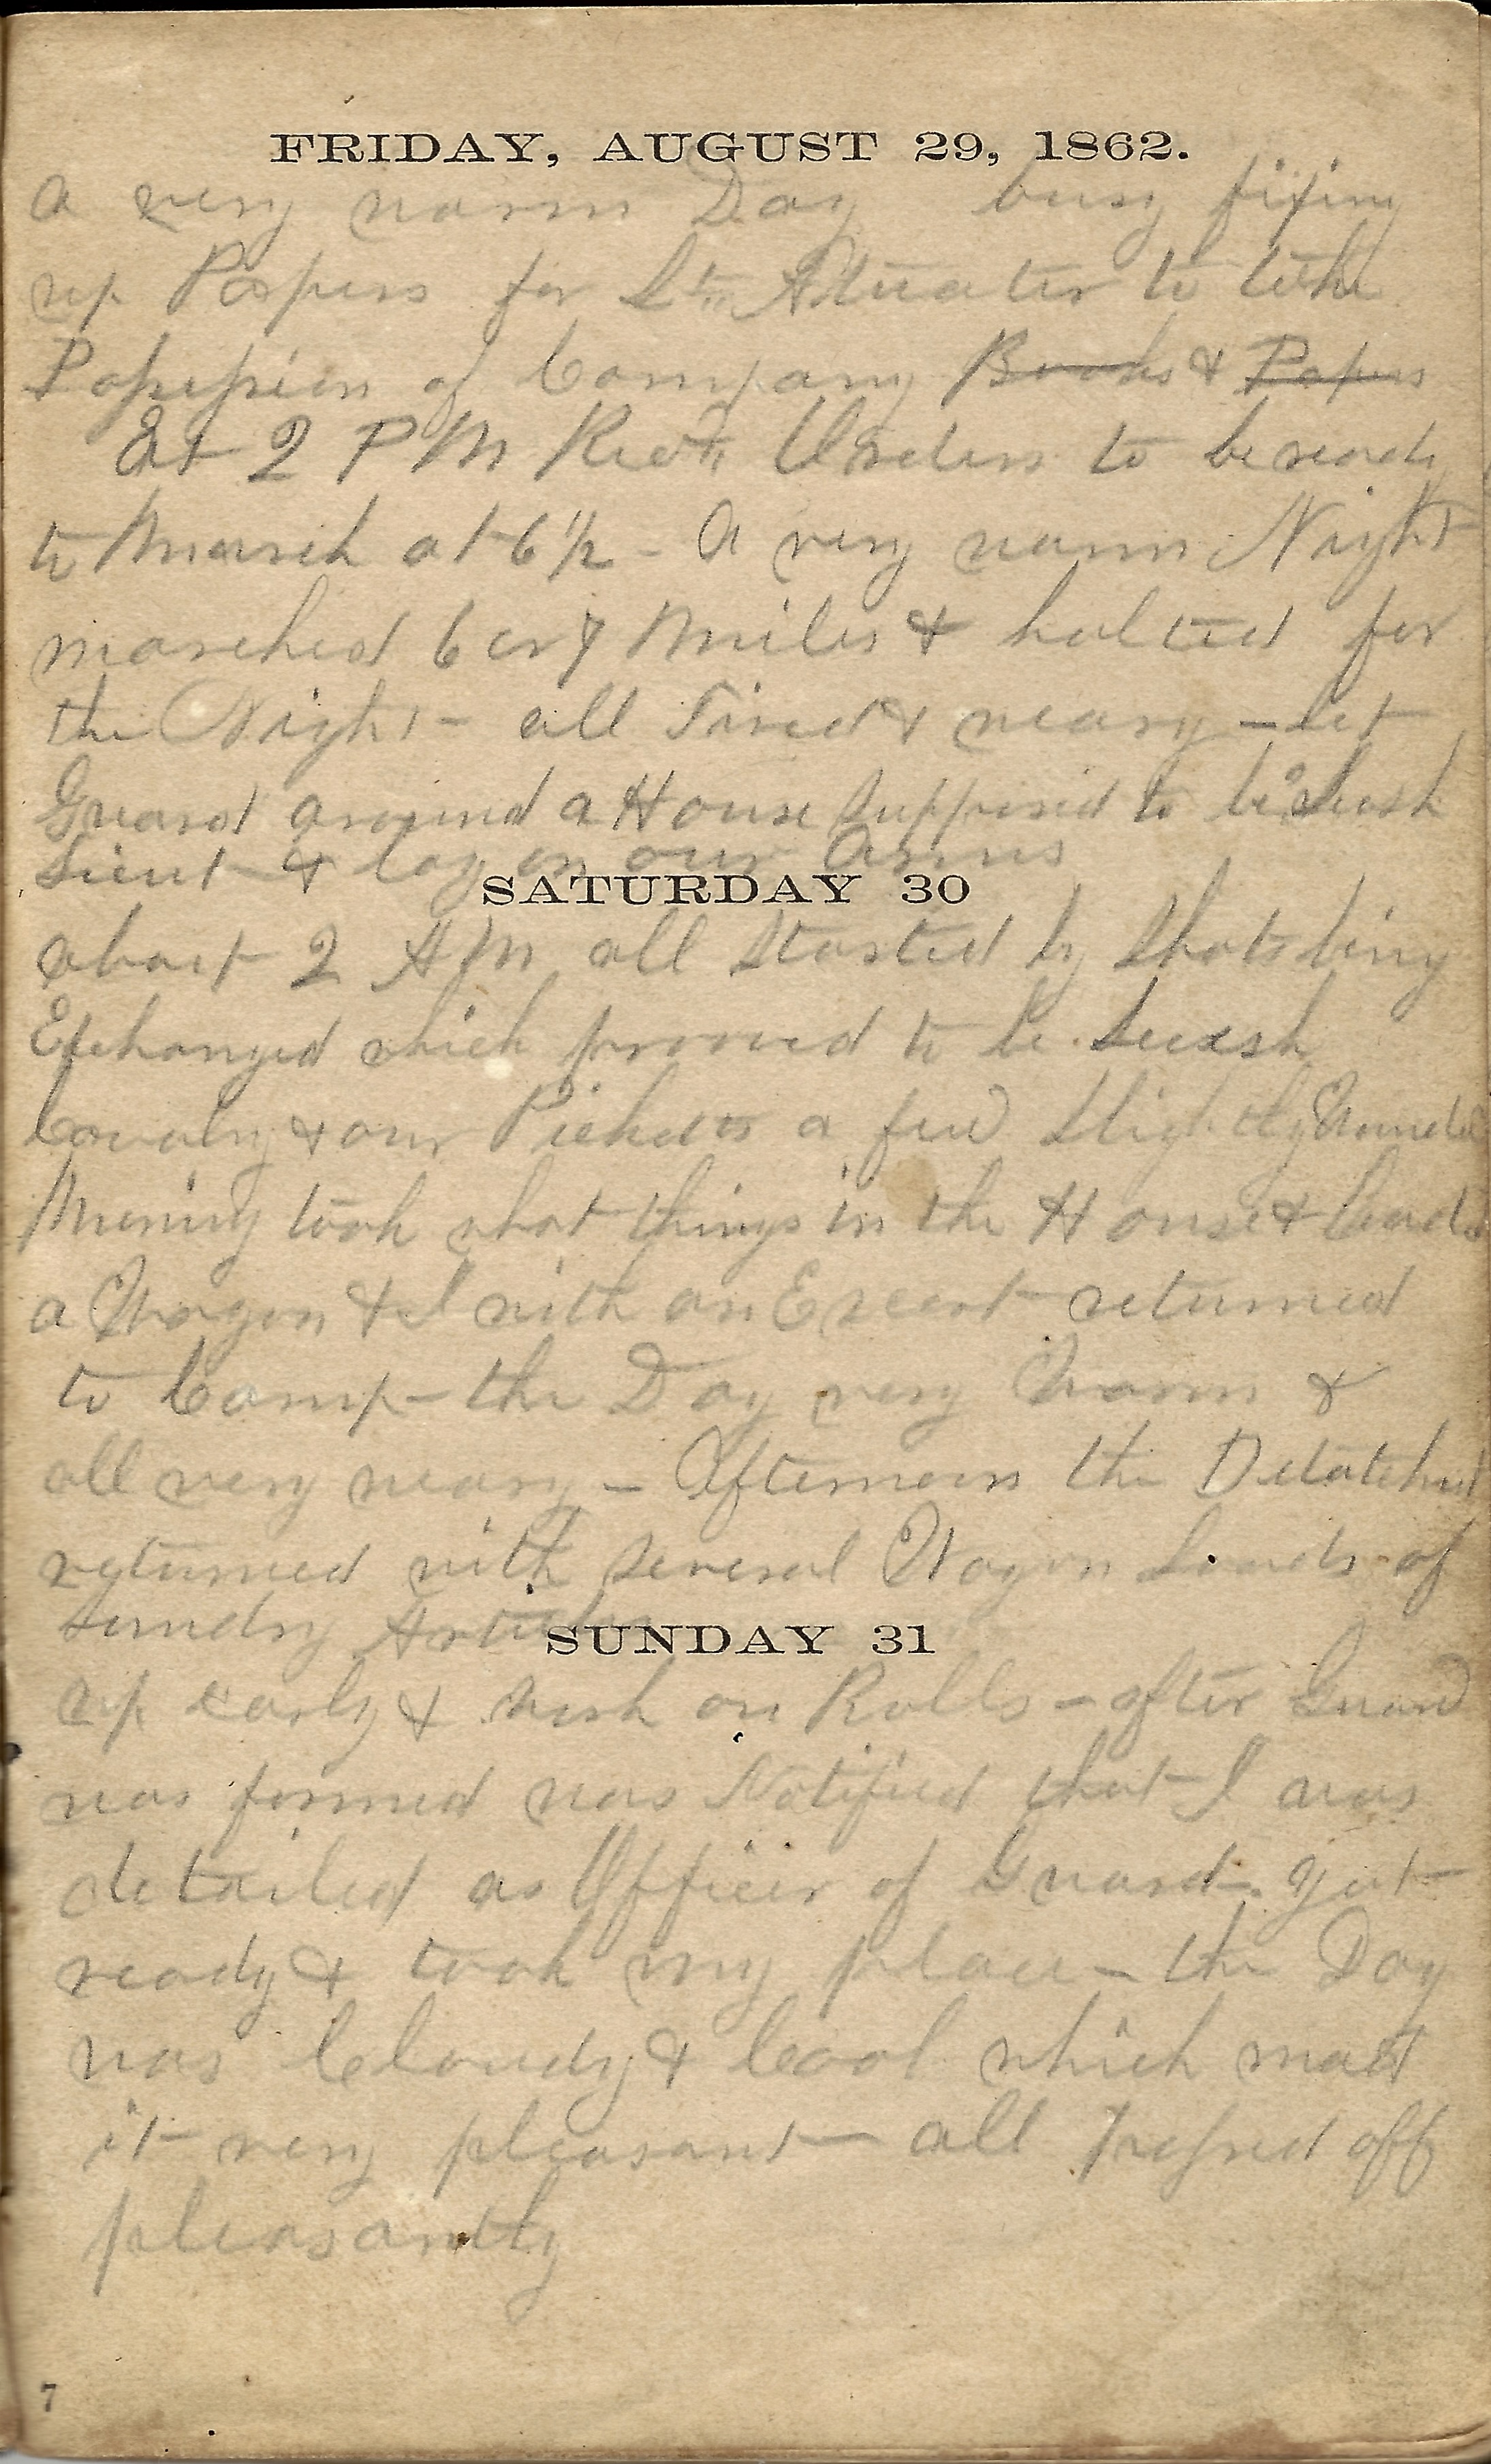 FRIDAY, AUGUST 29, 1862.
a very warm Day busy fixing
up Papers for Lt Atwater to take
Possession of Company Books & Papers
At 2 P M Recd Orders to be ready
to March at 6 1/2 - A very warm Night
marched 6 or 7 Miles & halted for
the Night - all Tired & weary - set
Guard around a House supposed to be Secesh
& lay on our Arms
SATURDAY 30
about 2 A M all Started by Shots being
Exchanged which prooved to be Secesh
Cavalry & our Pickets a few Slightly Wounded
Morning took what things in the House &
a Wagon & I with an Escort returned
to Camp - the Day very Warm &
all very weary - Afternoon the
returned with several Wagon Loads of
sundry Articles
SUNDAY 31
up early & work on Rolls - after Guard
was formed was Notified that I was
detailed as Officer of Guard. got
ready & took my place - the Day
was Cloudy & Cool which made
it very pleasant - all Passed off
pleasantly
7